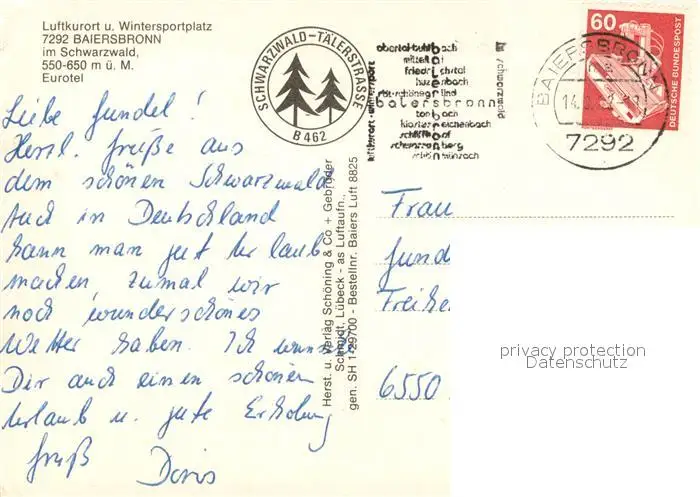 Luftkurort u. Wintersportplatz
7292 BAIERSBRONN
im Schwarzwald,
550-650 m ü. M.
Eurotel
SCHWARZWALD-TÄLERSTRASSE
B 462
obertal-buhlbach
mitteltal
friedrichstal
huzenbach
röt-schönegründ
baiersbronn
tonbach
klosterreichenbach
schliffkopf
schwarzenberg
schönmünzach
luftkurort-wintersport
schwarzwald
60
DEUTSCHE BUNDESPOST
BAIERSBRONN 1
7292
Liebe Gundel!
Herzl. Grüße aus
dem schönen Schwarzwald
Auch in Deutschland
kann man gut Urlaub
machen, zumal wir
noch wunderschönes
Wetter haben. Ich wünsche
Dir auch einen schönen
Urlaub u. gute Erholung
Gruß Doris
Herst. u. Verlag Schöning & Co + Gebrüder
Schmidt, Lübeck - as Luftaufn.,
gen. SH 1-29700 - Bestellnr. Baiers Luft 8825
Frau
Gund
Freihe
6550
privacy protection
Datenschutz